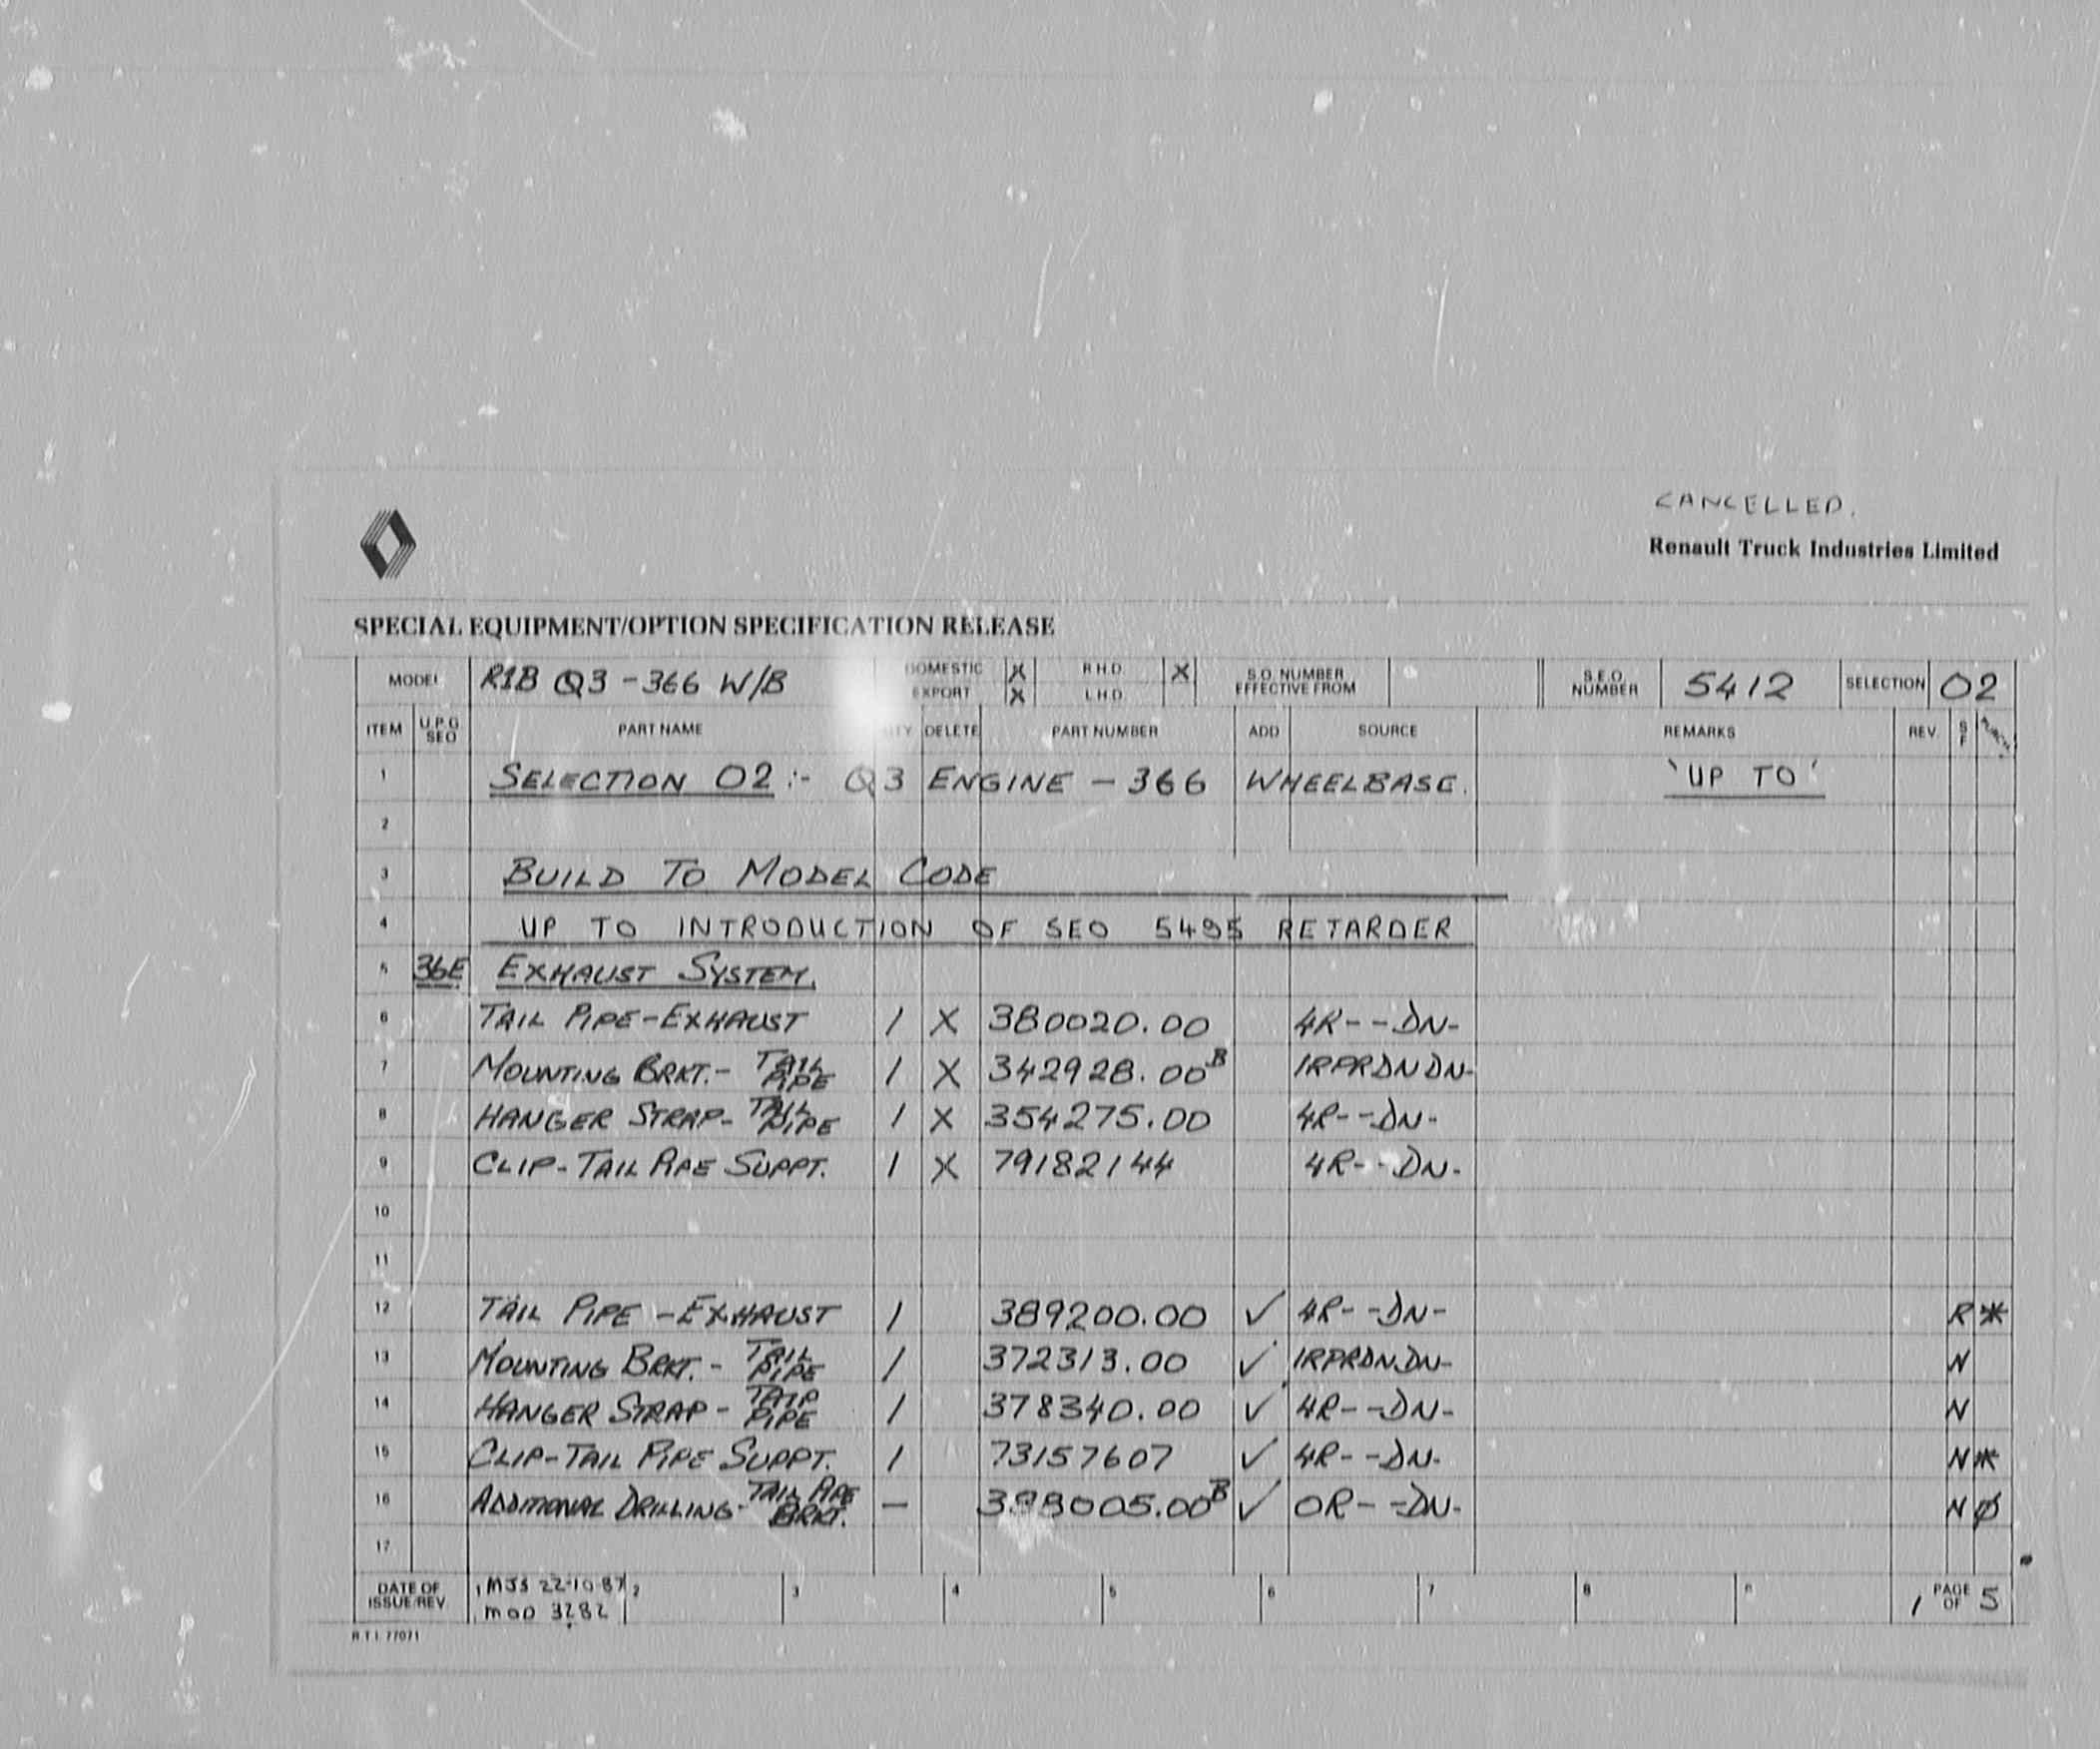 CANCELLED.
Renault Truck Industries Limited
SPECIAL EQUIPMENT/OPTION SPECIFICATION RELEASE
MODEL R1B Q3 - 366 W/B DOMESTIC X R.H.D. X S.O. NUMBER EFFECTIVE FROM S.E.O. NUMBER 5412 SELECTION 02
EXPORT X L.H.D.
ITEM U.P.G. SEO PART NAME DELETE PART NUMBER ADD SOURCE REMARKS REV. S F
1 SELECTION 02 :- Q3 ENGINE - 366 WHEELBASE. 'UP TO'
2
3 BUILD TO MODEL CODE
4 UP TO INTRODUCTION OF SEO 5495 RETARDER
5 36E EXHAUST SYSTEM.
6 TAIL PIPE-EXHAUST 1 X 380020.00 4R--DN-
7 MOUNTING BRKT.- TAIL PIPE 1 X 342928.00 B 1RPRDNDN-
8 HANGER STRAP- TAIL PIPE 1 X 354275.00 4R--DN-
9 CLIP-TAIL PIPE SUPPT. 1 X 79182144 4R--DN-
10
11
12 TAIL PIPE -EXHAUST 1 389200.00 ✓ 4R--DN- R *
13 MOUNTING BRKT.- TAIL PIPE 1 372313.00 ✓ 1RPRDNDN- N
14 HANGER STRAP- PIPE 1 378340.00 ✓ 4R--DN- N
15 CLIP-TAIL PIPE SUPPT. 1 73157607 ✓ 4R--DN- N *
16 ADDITIONAL DRILLING- TAIL PIPE BRKT. — ✓ 0R--DN- N Ø
17
DATE OF ISSUE/REV. 1 MJS 22-10-87 2 3 4 5 6 7 8 1 PAGE OF 5
MOD 3282
R.T.I. 77071